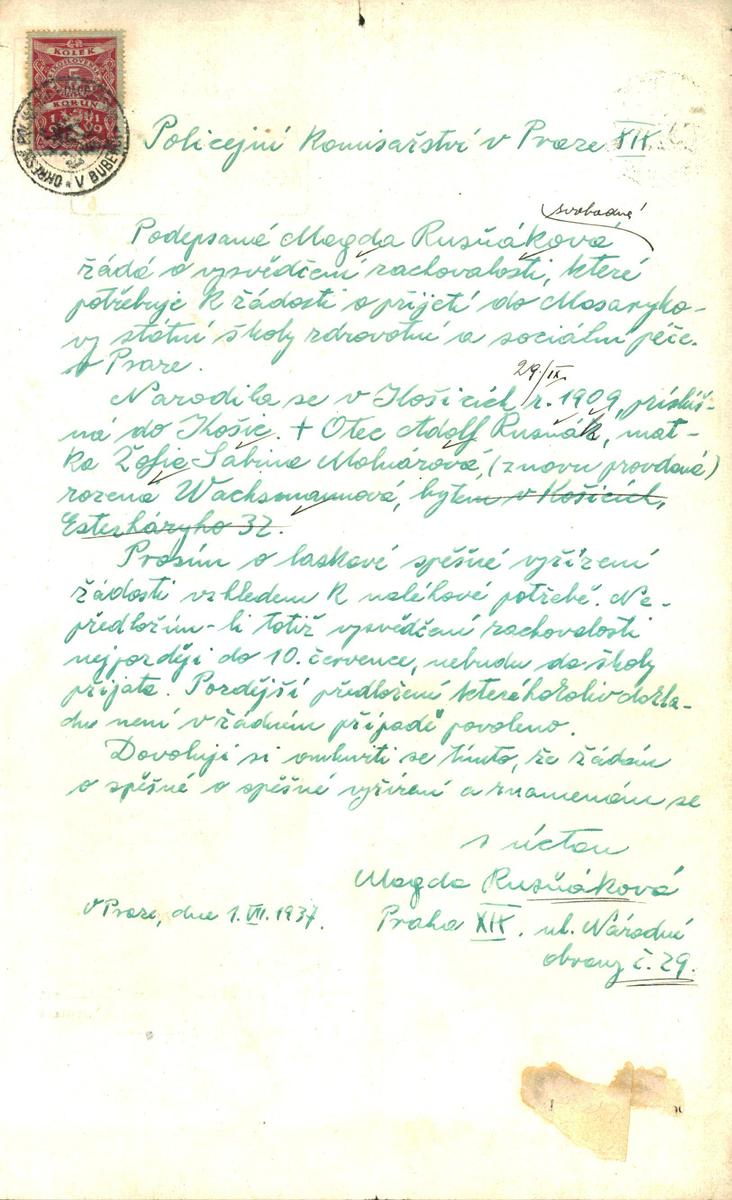 KOLEK
5
KORUN
V BUBEN
Policejní Komisařství v Praze XIX.
svobodná
Podepsaná Magda Rusňáková
žádá o vysvědčení zachovalosti, které
potřebuje k žádosti o přijetí do Masaryko-
vy státní školy zdravotní a sociální péče
v Praze.
29/IX.
Narodila se v Košicích r. 1909, přísluš-
ná do Košic. + Otec Adolf Rusňák, mat-
ka Žofie Sabina Molnárová, (znovu provdaná)
rozená Wachsmannová, bytem v Košicích,
Esterházyho 32.
Prosím o laskavé spěšné vyřízení
žádosti vzhledem k naléhavé potřebě. Ne-
předložím-li totiž vysvědčení zachovalosti
nejpozději do 10. července, nebudu do školy
přijata. Pozdější předložení kteréhokoliv dokla-
du není v žádném případě povoleno.
Dovoluji si omluviti se tímto, že žádám
o spěšné o spěšné vyřízení a znamenám se
s úctou
Magda Rusňáková
V Praze, dne 1. VII. 1937.
Praha XIX. ul. Národní
obrany č. 29.